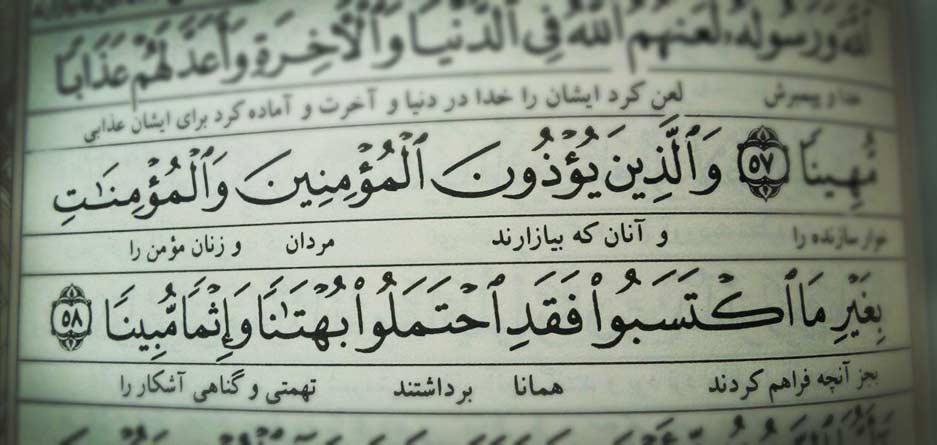 للَّهَ وَرَسُولَهُ لَعَنَهُمُ ٱللَّهُ فِي ٱلدُّنْيَا وَٱلْآخِرَةِ وَأَعَدَّ لَهُمْ عَذَابًا
خدا و پیمبرش لعن کرد ایشان را خدا در دنیا و آخرت و آماده کرد برای ایشان عذابی
مُّهِينًا ﴿٥٧﴾ وَٱلَّذِينَ يُؤْذُونَ ٱلْمُؤْمِنِينَ وَٱلْمُؤْمِنَٰتِ
خوار سازنده را و آنان که بیازارند مردان و زنان مؤمن را
بِغَيْرِ مَا ٱكْتَسَبُوا۟ فَقَدِ ٱحْتَمَلُوا۟ بُهْتَٰنًا وَإِثْمًا مُّبِينًا ﴿٥٨﴾
بجز آنچه فراهم کردند همانا برداشتند تهمتی و گناهی آشکار را